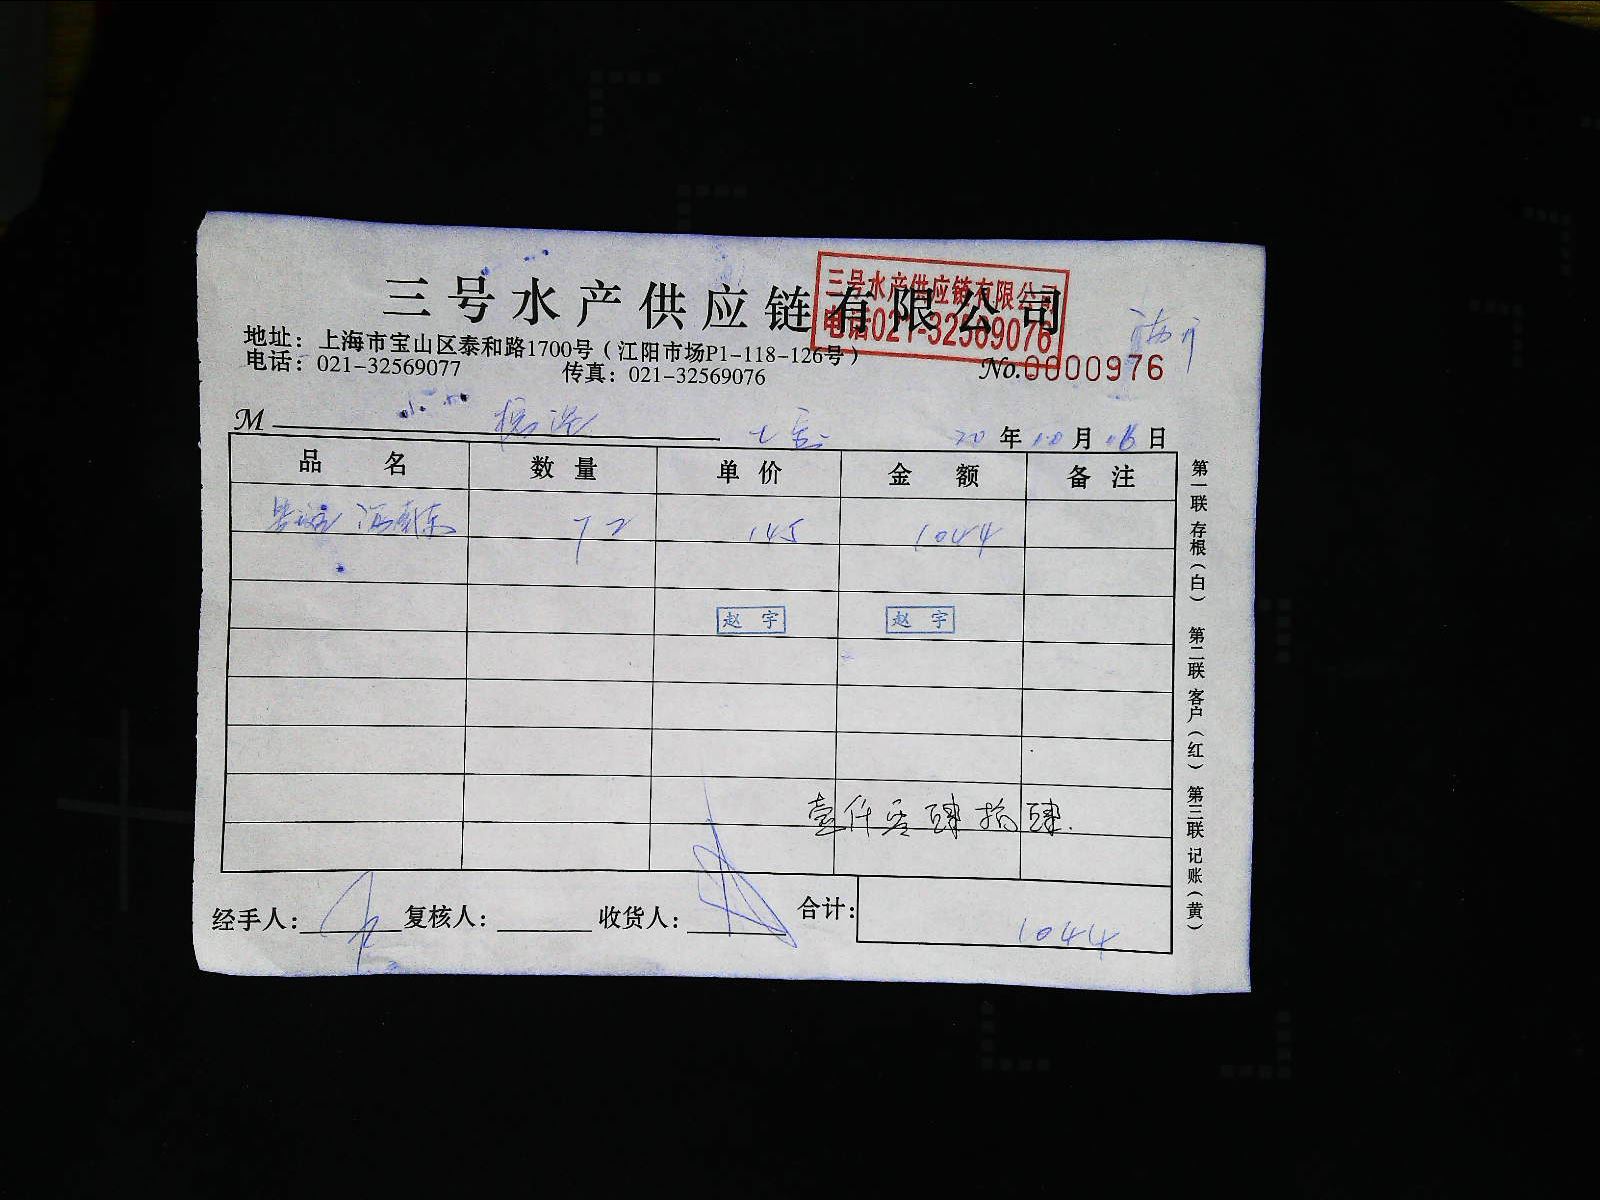 三号水产供应链有限公司
三号水产供应链有限公司
电话021-32569076
地址：上海市宝山区泰和路1700号（江阳市场P1-118-126号）
电话：021-32569077 传真：021-32569076
No.0000976
M
20年10月16日
品名 数量 单价 金额 备注
72 145 1044
赵宇 赵宇
壹仟零肆拾肆.
经手人： 复核人： 收货人： 合计： 1044
第一联 存根（白） 第二联 客户（红） 第三联 记账（黄）